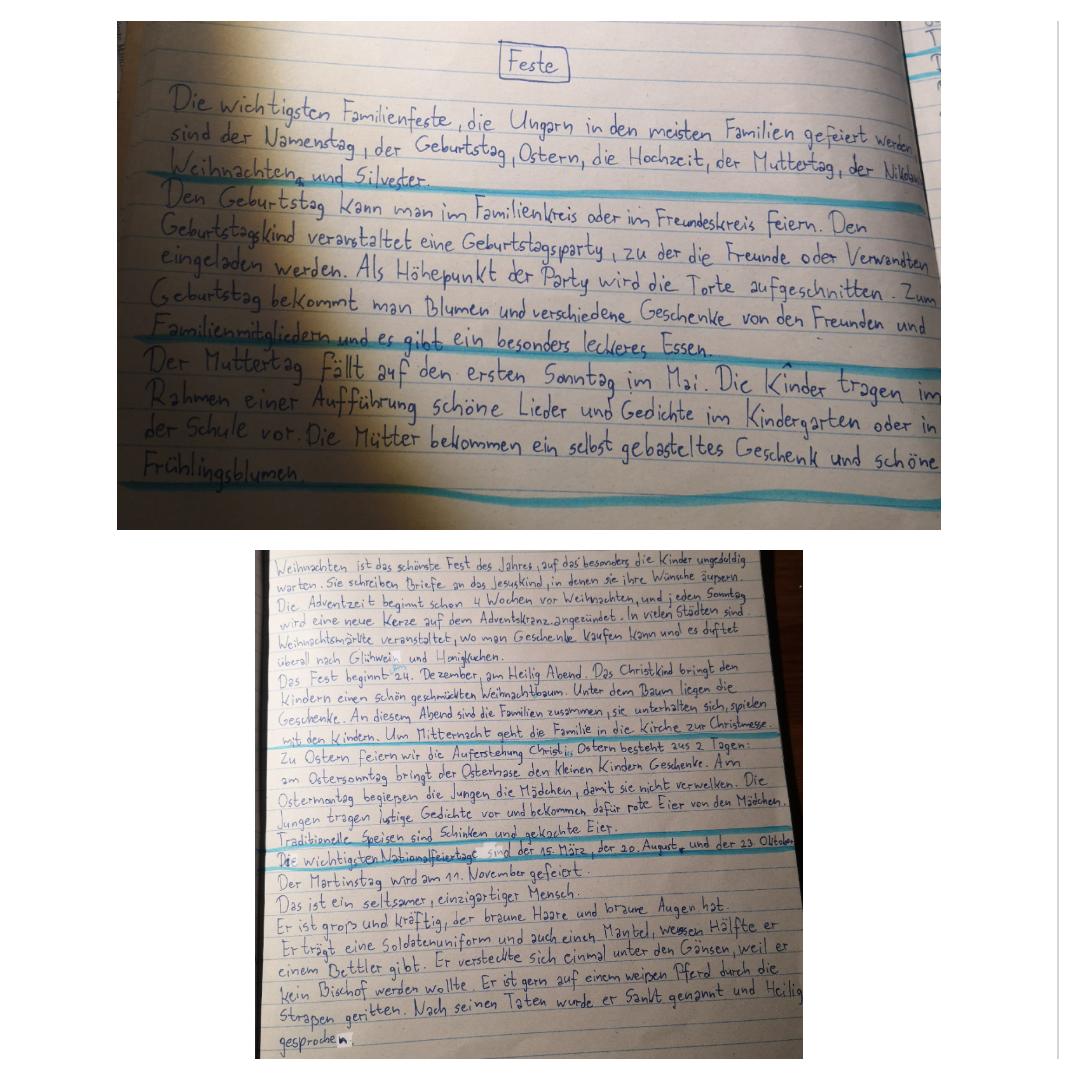 Feste
Die wichtigsten Familienfeste, die Ungarn in den meisten Familien gefeiert werden,
sind der Namenstag, der Geburtstag, Ostern, die Hochzeit, der Muttertag, der
Weihnachten, und Silvester.
Den Geburtstag kann man im Familienkreis oder im Freundeskreis feiern. Den
Geburtstagskind veranstaltet eine Geburtstagsparty, zu der die Freunde oder Verwandten
eingeladen werden. Als Höhepunkt der Party wird die Torte aufgeschnitten. Zum
Geburtstag bekommt man Blumen und verschiedene Geschenke von den Freunden und
Familienmitgliedern und es gibt ein besonders leckeres Essen.
Der Muttertag fällt auf den ersten Sonntag im Mai. Die Kinder tragen im
Rahmen einer Aufführung schöne Lieder und Gedichte im Kindergarten oder in
der Schule vor. Die Mütter bekommen ein selbst gebasteltes Geschenk und schöne
Frühlingsblumen.
Weihnachten ist das schönste Fest des Jahres, auf das besonders die Kinder ungeduldig
warten. Sie schreiben Briefe an das Jesuskind, in denen sie ihre Wünsche äußern.
Die Adventzeit beginnt schon 4 Wochen vor Weihnachten, und jeden Sonntag
wird eine neue Kerze auf dem Adventskranz angezündet. In vielen Städten sind
Weihnachtsmärkte veranstaltet, wo man Geschenke kaufen kann und es duftet
überall nach Glühwein und Honigkuchen.
Das Fest beginnt 24. Dezember, am Heilig Abend. Das Christkind bringt den
Kindern einen schön geschmückten Weihnachtbaum. Unter dem Baum liegen die
Geschenke. An diesem Abend sind die Familien zusammen, sie unterhalten sich, spielen
mit den Kindern. Um Mitternacht geht die Familie in die Kirche zur Christmesse.
Zu Ostern feiern wir die Auferstehung Christi. Ostern besteht aus 2 Tagen:
am Ostersonntag bringt der Osterhase den kleinen Kindern Geschenke. Am
Ostermontag begießen die Jungen die Mädchen, damit sie nicht verwelken. Die
Jungen tragen lustige Gedichte vor und bekommen dafür rote Eier von den Mädchen.
Traditionelle Speisen sind Schinken und gekochte Eier.
Die wichtigsten Nationalfeiertage sind der 15. März, der 20. August, und der 23. Oktober
Der Martinstag wird am 11. November gefeiert.
Das ist ein seltsamer, einzigartiger Mensch.
Er ist groß und kräftig, der braune Haare und braune Augen hat.
Er trägt eine Soldatenuniform und auch einen Mantel, wessen Hälfte er
einem Bettler gibt. Er versteckte sich einmal unter den Gänsen, weil er
kein Bischof werden wollte. Er ist gern auf einem weißen Pferd durch die
Straßen geritten. Nach seinen Taten wurde er Sankt genannt und Heilig
gesprochen.